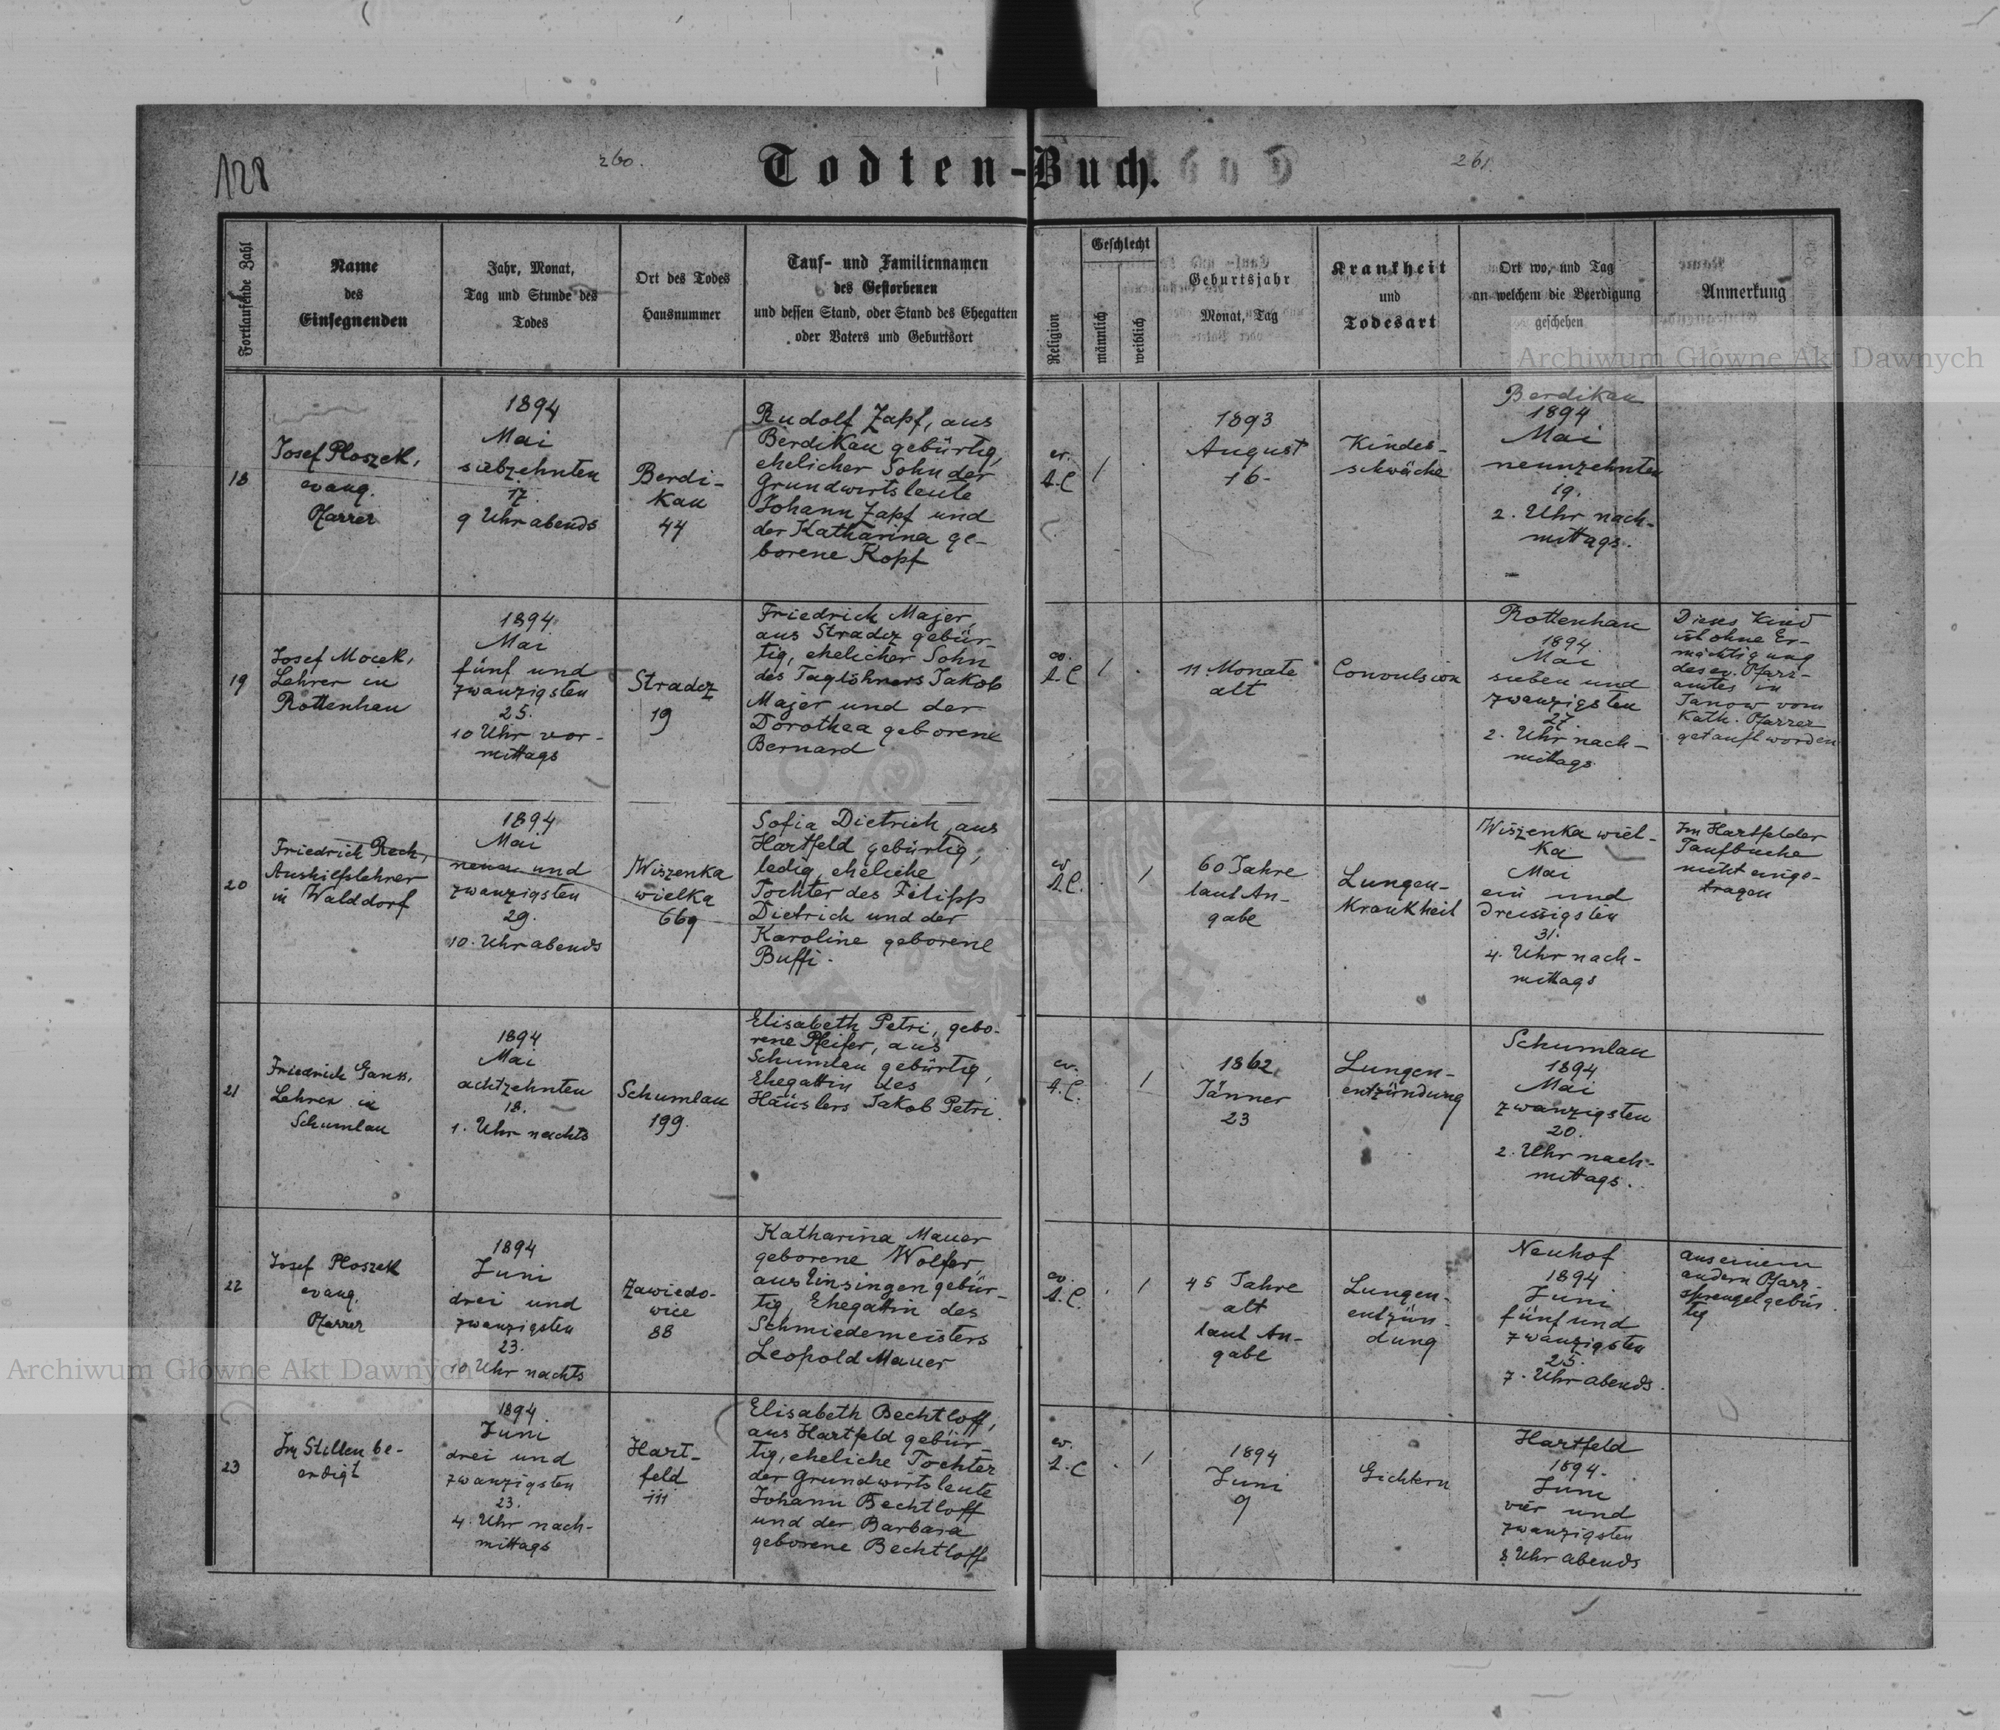 128
260.
Todten-Buch.
261.
Fortlaufende Zahl
Name
des
Einsegnenden
Jahr, Monat,
Tag und Stunde des
Todes
Ort des Todes
Hausnummer
Tauf- und Familiennamen
des Gestorbenen
und dessen Stand, oder Stand des Ehegatten
oder Vaters und Geburtsort
Religion
Geschlecht
männlich
weiblich
Geburtsjahr
Monat, Tag
Krankheit
und
Todesart
Ort wo, und Tag
an welchem die Beerdigung
geschehen
Anmerkung
Archiwum Główne Akt Dawnych
18
Josef Ploszek,
evang.
Pfarrer
1894
Mai
siebzehnten
17.
9 Uhr abends
Berdi-
kau
44
Rudolf Zapf, aus
Berdikau gebürtig,
ehelicher Sohn der
Grundwirtsleute
Johann Zapf und
der Katharina ge-
borene Kopf
ev.
A.C.
1
1893
August
16.
Kindes-
schwäche
Berdikau
1894
Mai
neunzehnten
19.
2. Uhr nach-
mittags.
19
Josef Mocek,
Lehrer in
Rottenhan
1894
Mai
fünf und
zwanzigsten
25.
10 Uhr vor-
mittags
Stradcz
19
Friedrich Majer,
aus Stradcz gebür-
tig, ehelicher Sohn
des Taglöhners Jakob
Majer und der
Dorothea geborene
Bernard
ev.
A.C.
1
11 Monate
alt
Convulsion
Rottenhan
1894.
Mai
sieben und
zwanzigsten
27.
2. Uhr nach-
mittags
Dieses Kind
ist ohne Er-
mächtigung
des ev. Pfarr-
amtes in
Janow vom
Kath. Pfarrer
getauft worden
20
Friedrich Rech,
Aushilfslehrer
in Walddorf
1894
Mai
neun und
zwanzigsten
29.
10. Uhr abends
Wiszenka
wielka
669
Sofia Dietrich, aus
Hartfeld gebürtig,
ledig, eheliche
Tochter des Filipp
Dietrich und der
Karoline geborene
Buffi.
ev.
A.C.
1
60 Jahre
laut An-
gabe
Lungen-
krankheit
Wiszenka wiel-
ka
Mai
ein und
dreissigsten
31.
4. Uhr nach-
mittags
Im Hartfelder
Taufbuche
nicht einge-
tragen
21
Friedrich Ganss,
Lehrer in
Schumlau
1894
Mai
achtzehnten
18.
1. Uhr nachts
Schumlau
199.
Elisabeth Petri, gebo-
rene Pfeifer, aus
Schumlau gebürtig,
Ehegattin des
Häuslers Jakob Petri.
ev.
A.C.
1
1862
Jänner
23
Lungen-
entzündung
Schumlau
1894
Mai
zwanzigsten
20.
2. Uhr nach-
mittags.
22
Josef Ploszek
evang.
Pfarrer
1894
Juni
drei und
zwanzigsten
23.
10 Uhr nachts
Zawiedo-
wice
88
Katharina Mauer
geborene Wolfer,
aus Einsingen gebür-
tig, Ehegattin des
Schmiedemeisters
Leopold Mauer
ev.
A.C.
1
45 Jahre
alt
laut An-
gabe
Lungen-
entzün-
dung
Neuhof
1894
Juni
fünf und
zwanzigsten
25.
7. Uhr abends.
aus einem
andern Pfarr-
sprengel gebür-
tig
Archiwum Główne Akt Dawnych
23
Im Stillen be-
erdigt
1894.
Juni
drei und
zwanzigsten
23.
4. Uhr nach-
mittags
Hart-
feld
111
Elisabeth Bechtloff,
aus Hartfeld gebür-
tig, eheliche Tochter
der Grundwirtsleute
Johann Bechtloff
und der Barbara
geborene Bechtloff
ev.
A.C.
1
1894
Juni
9
Gichtern
Hartfeld
1894.
Juni
vier und
zwanzigsten
8 Uhr abends